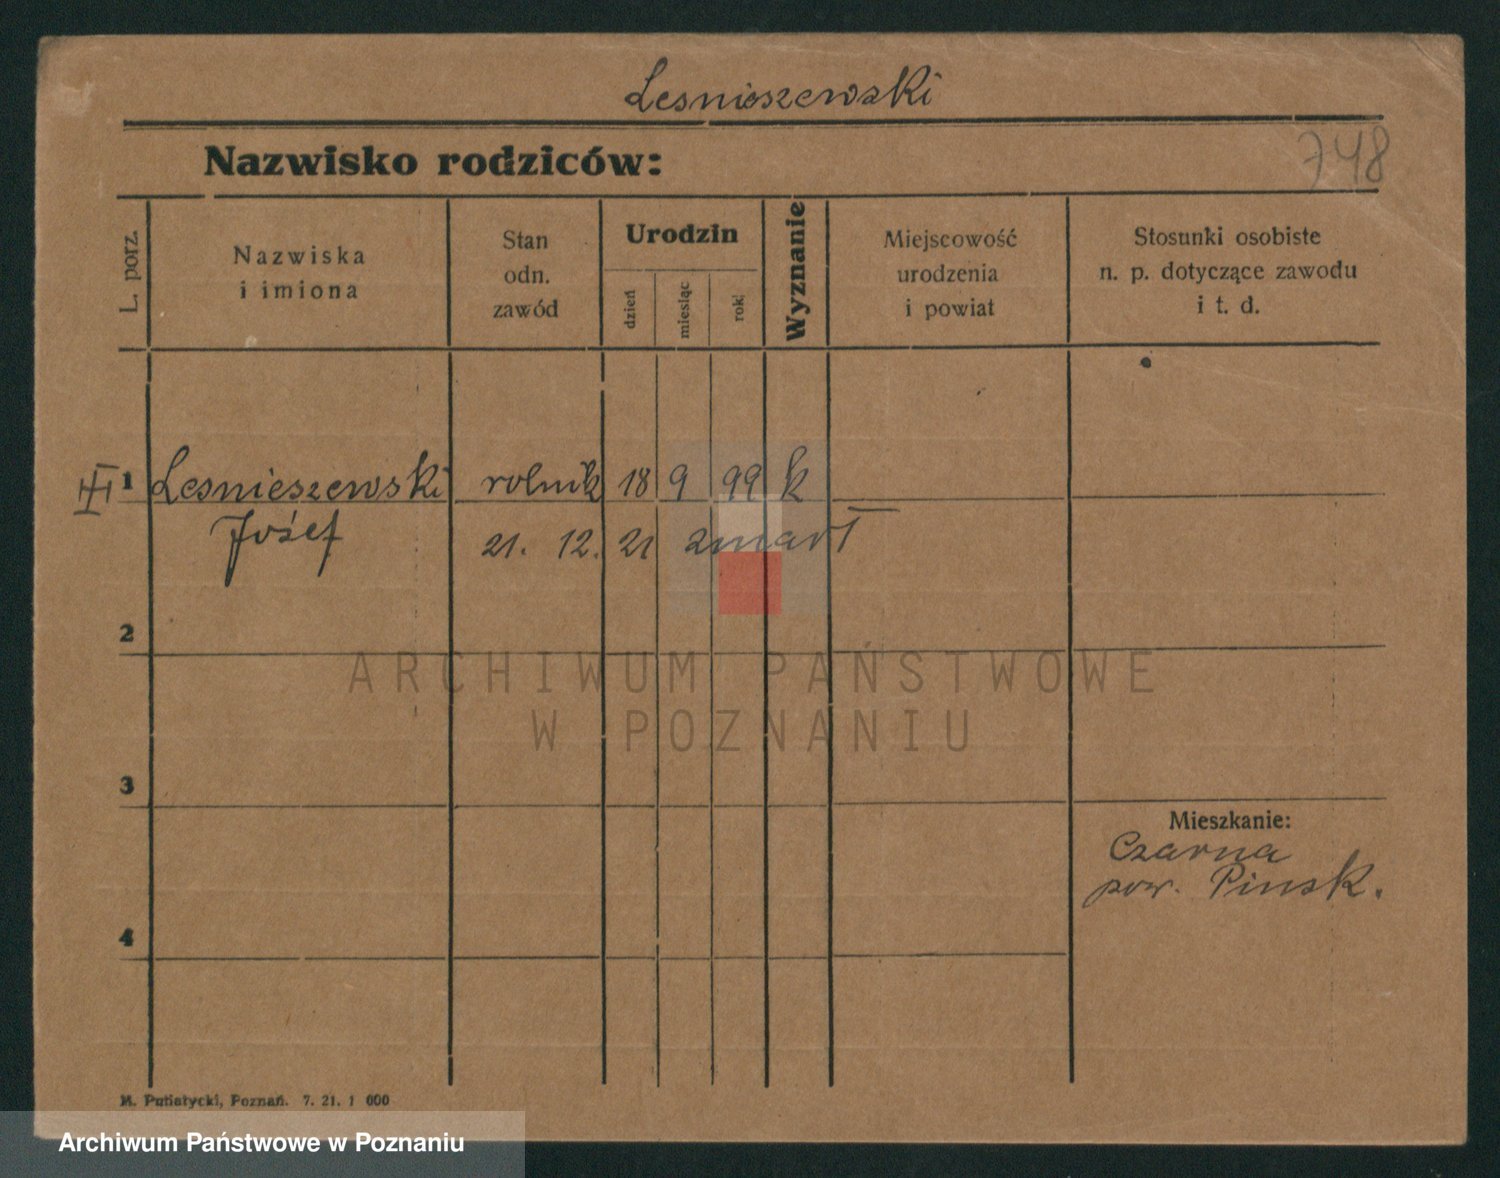 Lesnieszewski
Nazwisko rodziców:
748
L. porz.
Nazwiska
i imiona
Stan
odn.
zawód
Urodzin
dzień
miesiąc
rok
Wyznanie
Miejscowość
urodzenia
i powiat
Stosunki osobiste
n. p. dotyczące zawodu
i t. d.
III 1 Lesnieszewski rolnik 18 9 99 k
Józef 21. 12. 21 zmarł
2
3
Mieszkanie:
Czarna
pow. Pinsk.
4
M. Putiatycki, Poznań. 7. 21. 1 000
ARCHIWUM PAŃSTWOWE
W POZNANIU
Archiwum Państwowe w Poznaniu